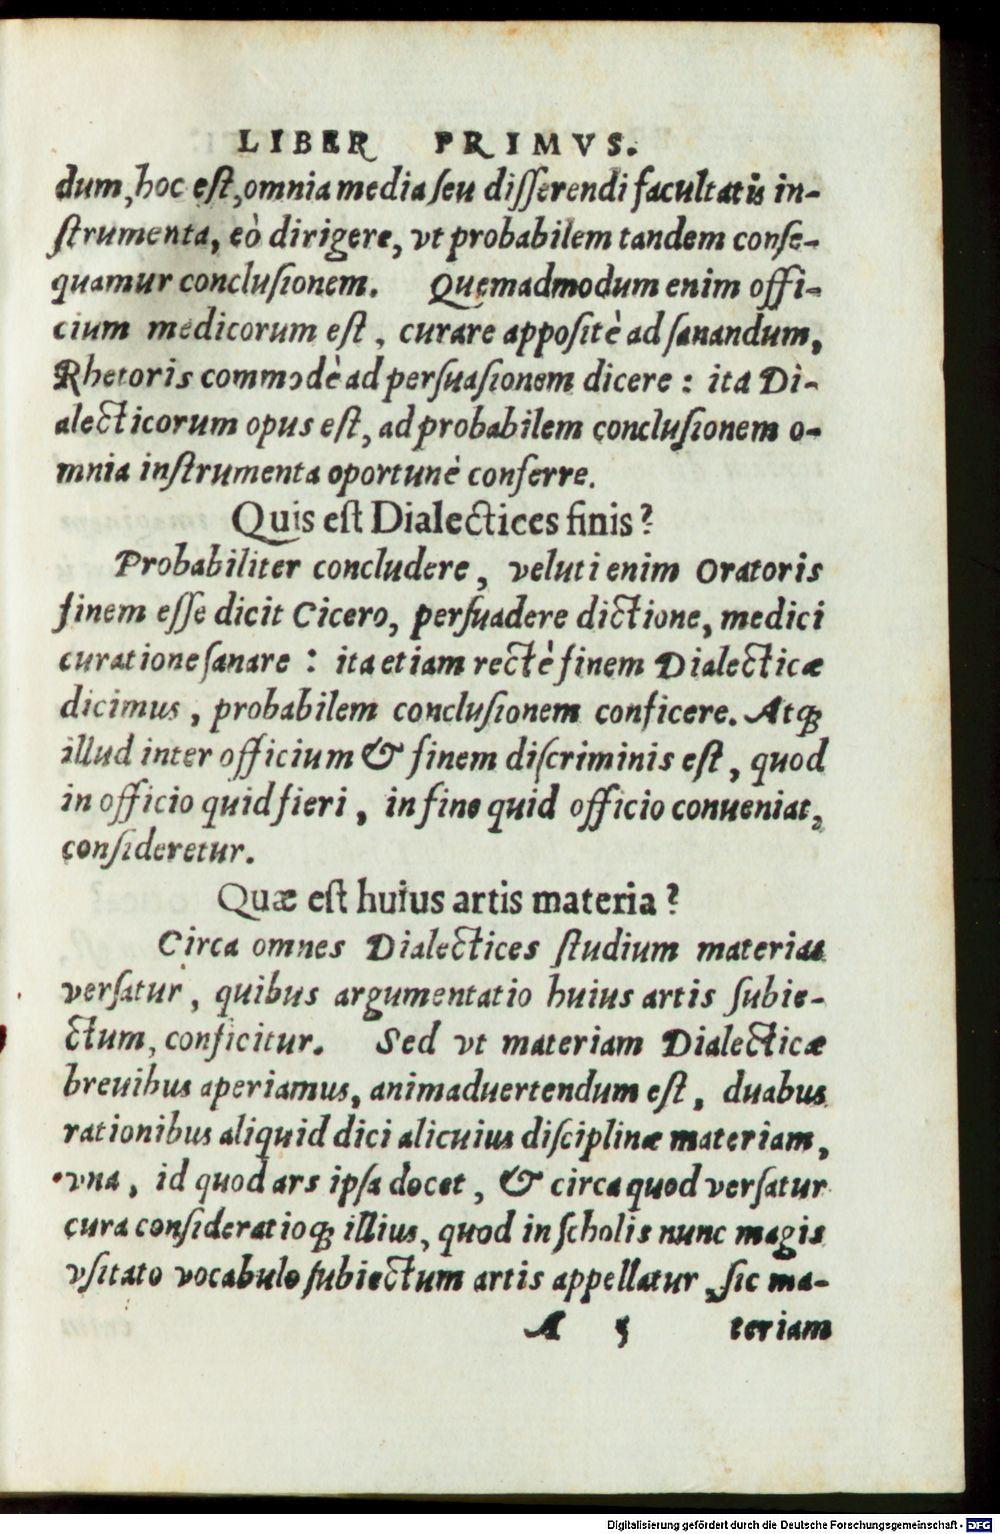 LIBER PRIMVS.
dum, hoc eſt, omnia media ſeu diſſerendi facultatis in-
ſtrumenta, eò dirigere, vt probabilem tandem conſe-
quamur concluſionem. Quemadmodum enim offi-
cium medicorum eſt, curare appoſitè ad ſanandum,
Rhetoris commodè ad perſuaſionem dicere: ita Di-
alecticorum opus eſt, ad probabilem concluſionem o-
mnia inſtrumenta oportunè conferre.
Quis eſt Dialectices finis?
Probabiliter concludere, veluti enim Oratoris
finem eſſe dicit Cicero, perſuadere dictione, medici
curatione ſanare: ita etiam rectè finem Dialecticæ
dicimus, probabilem concluſionem conficere. Atq;
illud inter officium & finem diſcriminis eſt, quod
in officio quid fieri, in fine quid officio conueniat,
conſideretur.
Quæ eſt huius artis materia?
Circa omnes Dialectices ſtudium materias
verſatur, quibus argumentatio huius artis ſubie-
ctum, conficitur. Sed vt materiam Dialecticæ
breuibus aperiamus, animaduertendum eſt, duabus
rationibus aliquid dici alicuius diſciplinæ materiam,
vna, id quod ars ipſa docet, & circa quod verſatur
cura conſideratioq; illius, quod in ſcholis nunc magis
vſitato vocabulo ſubiectum artis appellatur, ſic ma-
A 5 teriam
Digitalisierung gefördert durch die Deutsche Forschungsgemeinschaft - DFG